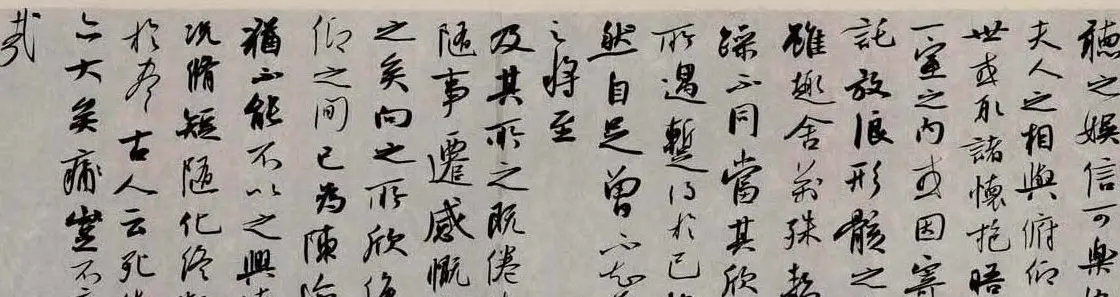 聴之娱信可樂
夫人之相與俯仰
世或取諸懷抱晤
一室之內或因寄
託放浪形骸之
雖趣舍萬殊
躁不同當其欣
所遇暫得於己
然自足曾不知
之將至
及其所之既惓
隨事遷感慨
之矣向之所欣
仰之間已為陳
猶不能不以之興
況脩短隨化終
於盡古人云死
亦大矣痛豈不
哉